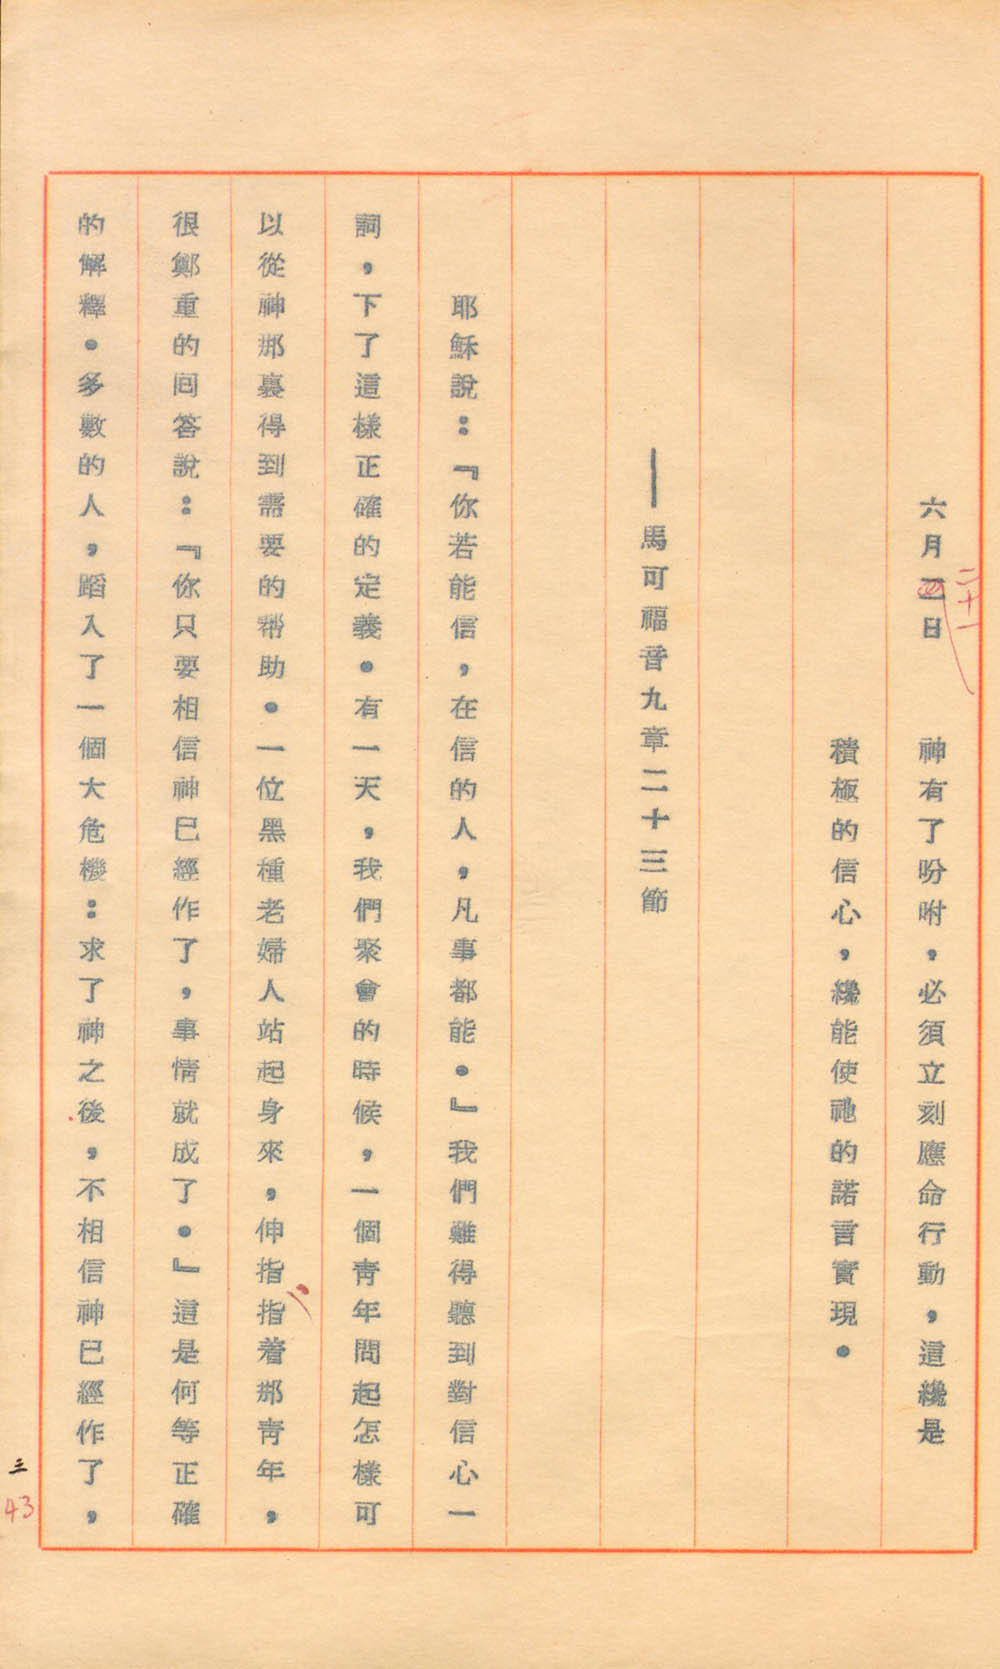 六月三日　神有了吩咐，必須立刻應命行動，這纔是
二十一
積極的信心，纔能使祂的諾言實現。
——馬可福音九章二十三節
耶穌說：『你若能信，在信的人，凡事都能。』我們難得聽到對信心一
詞，下了這樣正確的定義。有一天，我們聚會的時候，一個青年問起怎樣可
以從神那裏得到需要的帮助。一位黑種老婦人站起身來，伸指指着那青年，
很鄭重的囘答說：『你只要相信神已經作了，事情就成了。』這是何等正確
的解釋。多數的人，蹈入了一個大危機：求了神之後，不相信神已經作了，
三
43